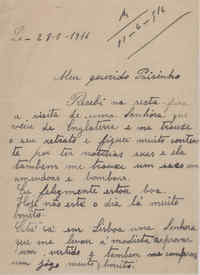 Lx - 28-5-1916
11-6-916
Meu querido Paisinho
Recebi na sexta-feira
a visita de uma Senhora que
veio de Inglaterra e me trouxe
o seu retrato e fiquei muito conten
te por ter noticias suas e ela
tambem me trouxe um sacco com
amendoas e bombons.
Eu felizmente estou boa.
Hoje não está o dia lá muito
bonito.
Está cá em Lisboa uma Senhora
que me levou á modista experimentar
um vestido e tambem me comprou
um jogo muito bonito.